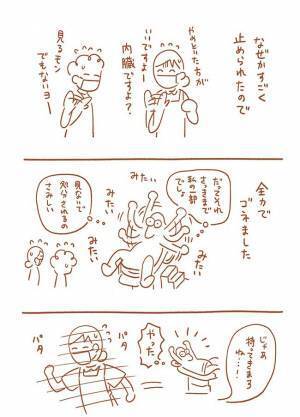 なぜかすごく
止められたので
やめといた方が
いいですよー
内臓ですよ？
見るモン
でもないヨー
全力で
ゴネました
だってそれ
さっきまで
私の一部
でしょ
みたい
みたい
みたい
みたい
見ないで
処分されるの
さみしい
じゃあ
持ってきまろ
ね…！
やった
バタ
バタ